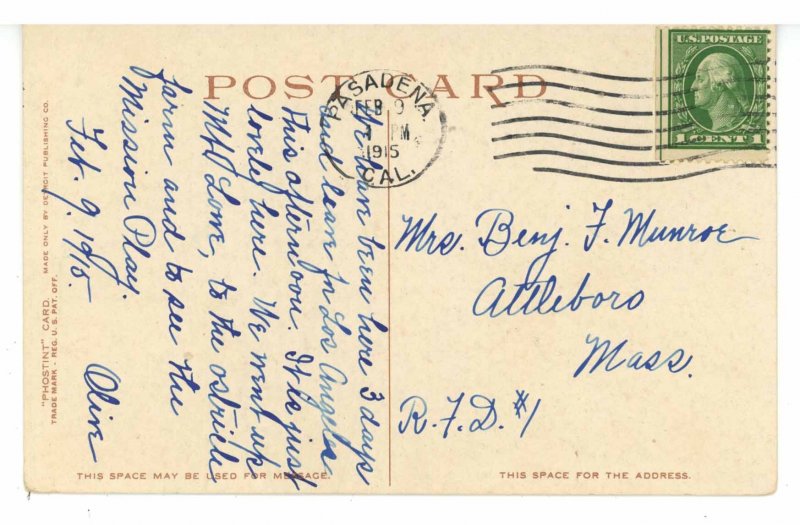 POST CARD
PASADENA,
FEB 9
PM
1915
CAL.
U.S. POSTAGE
1 CENT 1
We have been here 3 days
and leave for Los Angeles
this afternoon. It is just
lovely here. We went up
Mt Lowe, to the ostrich
farm and to see the
Mission Play.
Feb. 9, 1915. Olive
Mrs. Benj. F. Munroe
Attleboro
Mass.
R.F.D. #1
"PHOSTINT" CARD. MADE ONLY BY DETROIT PUBLISHING CO.
TRADE MARK - REG. U. S. PAT. OFF.
THIS SPACE MAY BE USED FOR MESSAGE.
THIS SPACE FOR THE ADDRESS.